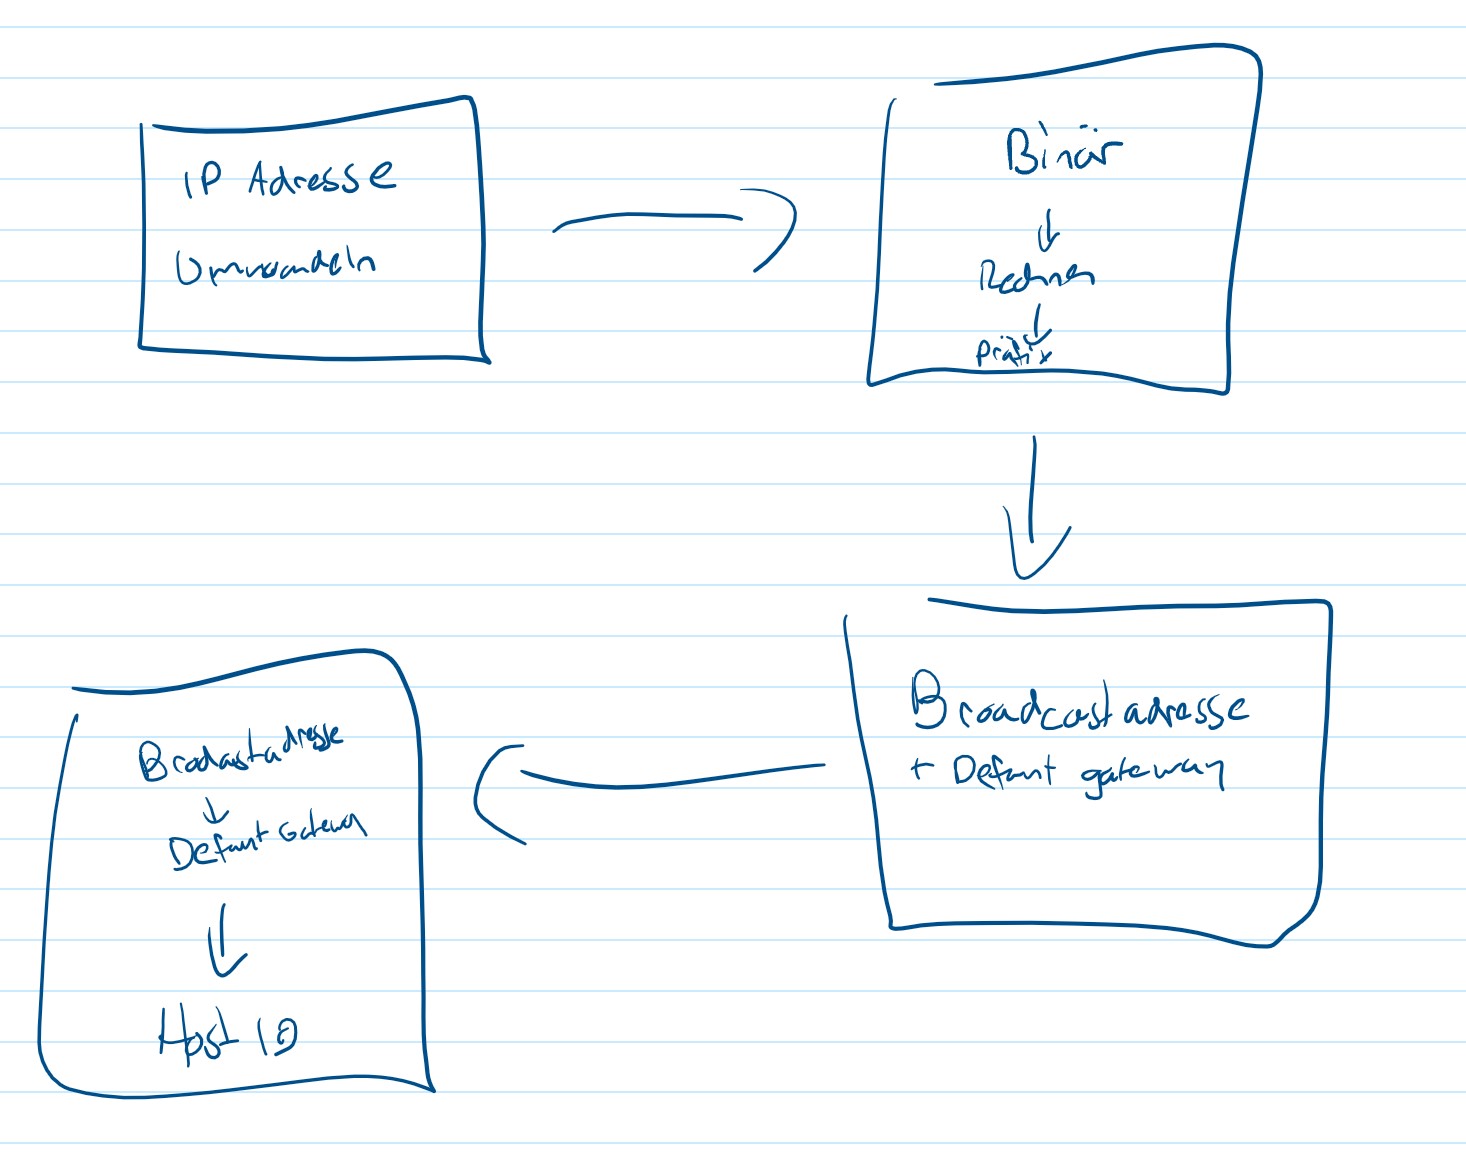 IP Adresse
Umwandeln
Binär
Rechnen
Präfix
Broadcastadresse
+ Defaut gateway
Brodcastadresse
Defaut Gateway
Host ID